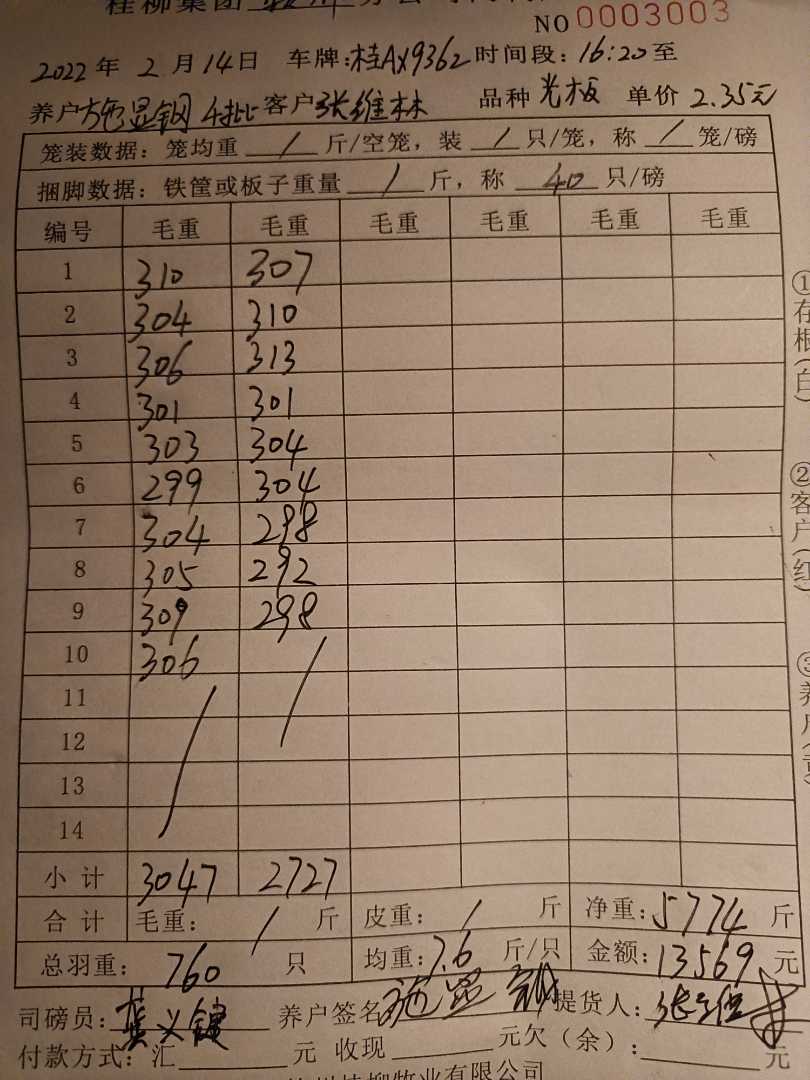 桂柳集团
NO 0003003
2022年 2月14日 车牌：桂AX9362 时间段：16:20至
养户 施显钢 4批 客户 张维林 品种 光板 单价 2.35元
笼装数据：笼均重 / 斤/空笼，装 / 只/笼，称 / 笼/磅
捆脚数据：铁筐或板子重量 / 斤，称 40 只/磅
编号 毛重 毛重 毛重 毛重 毛重 毛重
1 310 307
2 304 310
3 306 313
4 301 301
5 303 304
6 299 304
7 304 298
8 305 292
9 309 298
10 306 /
11 /
12
13
14
小计 3047 2727
合计 毛重： / 斤 皮重： / 斤 净重：5774 斤
总羽重：760 只 均重：7.6 斤/只 金额：13569 元
司磅员：龚义键 养户签名 施显钢 提货人：张
付款方式：汇 元 收现 元欠（余）： 元
桂柳牧业有限公司
①存根（白）
②客户（红）
③养户（黄）